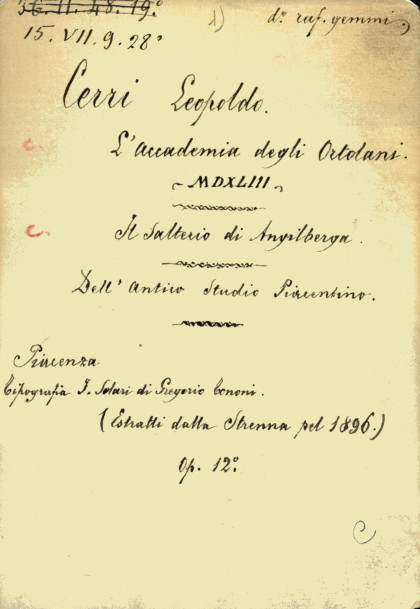 36. II. 48. 19º
1) dº raf. gemmi.)
15. VII. 9. 28º
Cerri Leopoldo.
C. L'Accademia degli Ortolani.
~ MDXLIII ~
C. Il Salterio di Angilberga.
Dell' Antico Studio Piacentino.
Piacenza
Tipografia F. Solari di Gregorio Tononi.
(Estratti dalla Strenna pel 1896.)
Op. 12º.
C